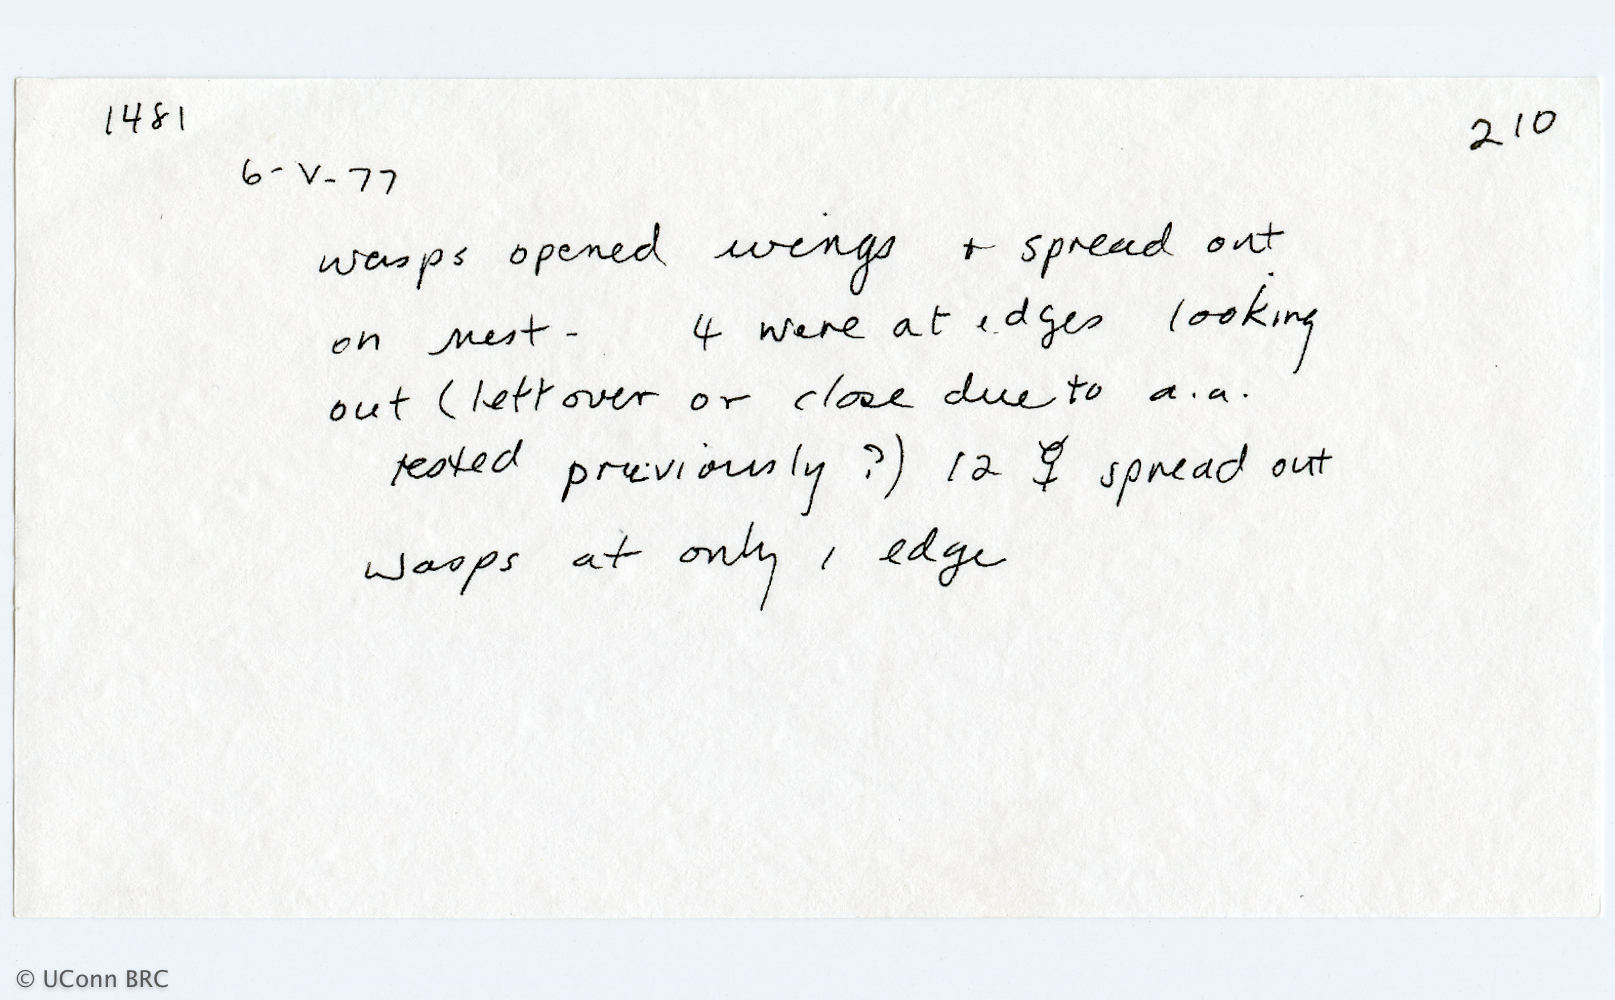 1481
210
6-V-77
wasps opened wings + spread out
on nest - 4 were at edges looking
out (left over or close due to a.a.
tested previously?) 12 ☿ spread out
wasps at only 1 edge
© UConn BRC